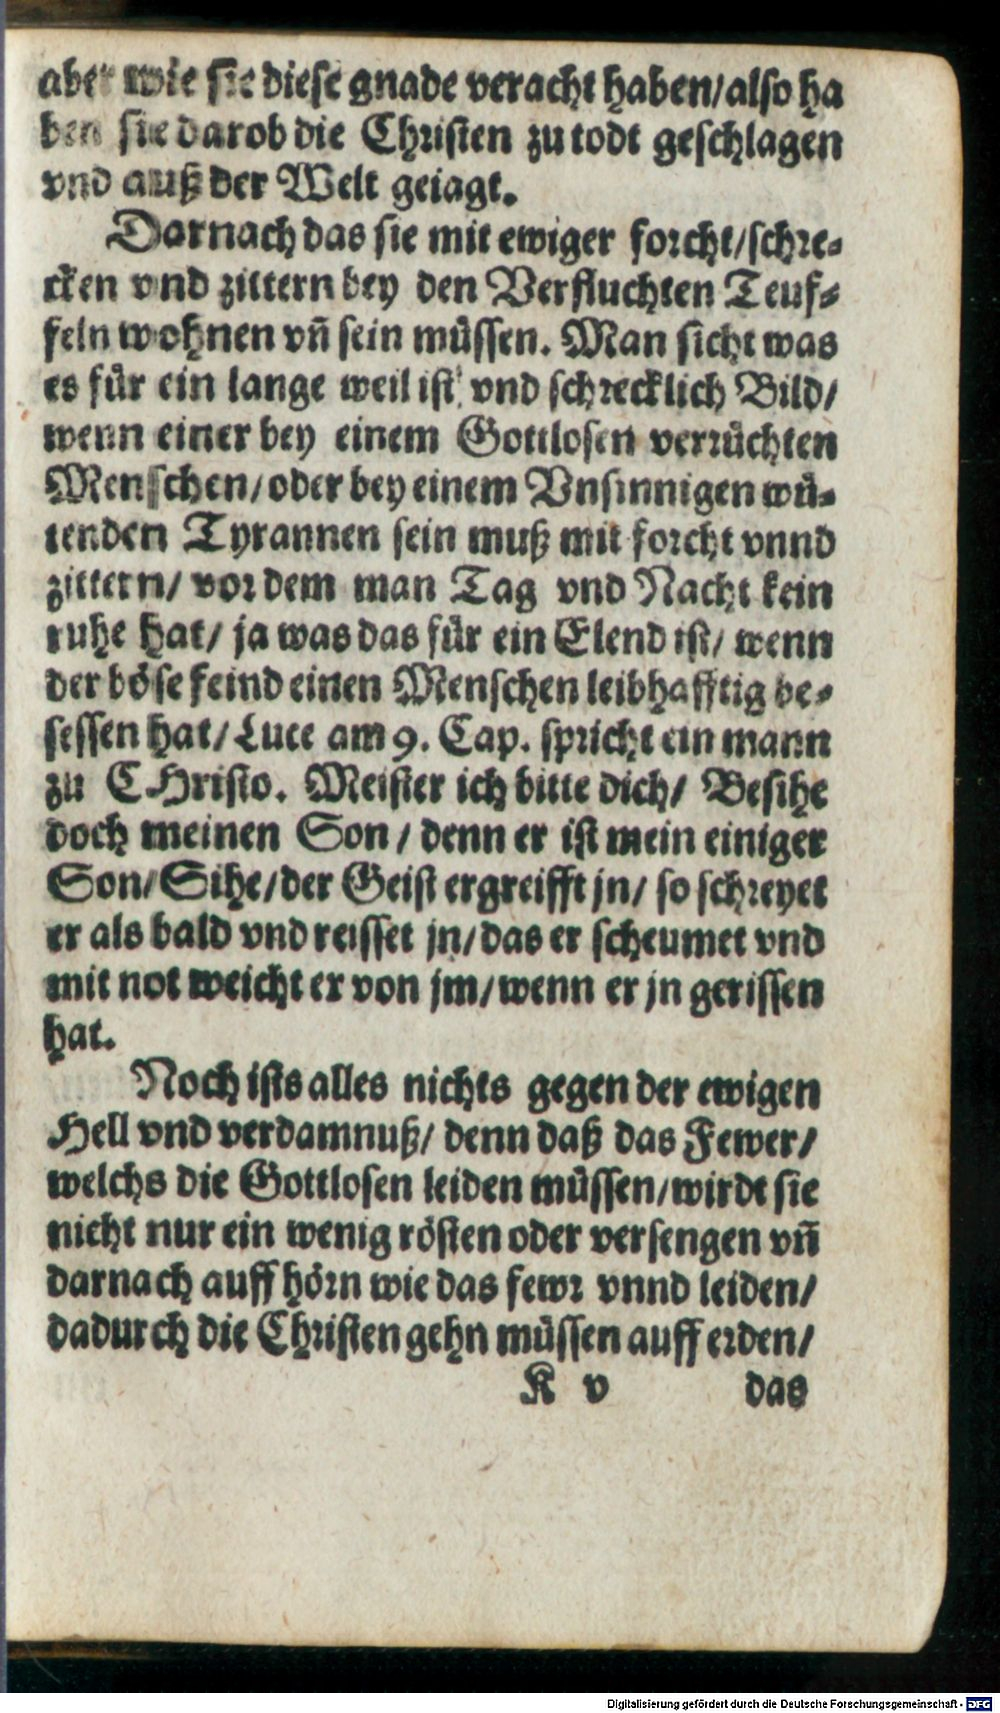 aber wie sie diese gnade veracht haben/also ha
ben sie darob die Christen zu todt geschlagen
vnd auß der Welt geiagt.
Darnach das sie mit ewiger forcht/schre⸗
cken vnd zittern bey den Verfluchten Teuf⸗
feln wohnen vn̄ sein müssen. Man sicht was
es für ein lange weil ist vnd schrecklich Bild/
wenn einer bey einem Gottlosen verrüchten
Menschen/oder bey einem Vnsinnigen wü⸗
tenden Tyrannen sein muß mit forcht vnnd
zittern/ vor dem man Tag vnd Nacht kein
ruhe hat/ ja was das für ein Elend ist/ wenn
der böse feind einen Menschen leibhafftig be⸗
sessen hat/Luce am 9. Cap. spricht ein mann
zu CHristo. Meister ich bitte dich/ Besihe
doch meinen Son/ denn er ist mein einiger
Son/Sihe/der Geist ergreifft jn/ so schreyet
er als bald vnd reisset jn/das er scheumet vnd
mit not weicht er von jm/wenn er jn gerissen
hat.
Noch ists alles nichts gegen der ewigen
Hell vnd verdamnuß/ denn daß das Fewer/
welchs die Gottlosen leiden müssen/wirdt sie
nicht nur ein wenig rösten oder versengen vn̄
darnach auff hörn wie das fewr vnnd leiden/
dadurch die Christen gehn müssen auff erden/
K v das
Digitalisierung gefördert durch die Deutsche Forschungsgemeinschaft - DFG